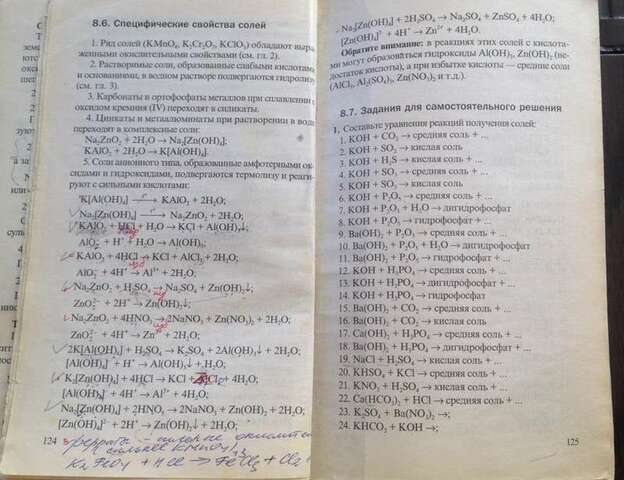 8.6. Специфические свойства солей
1. Ряд солей (KMnO₄, K₂Cr₂O₇, KClO₃) обладают выра-
женными окислительными свойствами (см. гл. 2).
2. Растворимые соли, образованные слабыми кислотами
и основаниями, в водном растворе подвергаются гидролизу
(см. гл. 3).
3. Карбонаты и ортофосфаты металлов при сплавлении с
оксидом кремния (IV) переходят в силикаты.
4. Цинкаты и метаалюминаты при растворении в воде
переходят в комплексные соли:
Na₂ZnO₂ + 2H₂O → Na₂[Zn(OH)₄];
KAlO₂ + 2H₂O → K[Al(OH)₄].
5. Соли анионного типа, образованные амфотерными ок-
сидами и гидроксидами, подвергаются термолизу и реаги-
руют с сильными кислотами:
K[Al(OH)₄] → KAlO₂ + 2H₂O;
Na₂[Zn(OH)₄] → Na₂ZnO₂ + 2H₂O;
KAlO₂ + HCl + H₂O → KCl + Al(OH)₃↓;
AlO₂⁻ + H⁺ + H₂O → Al(OH)₃;
KAlO₂ + 4HCl → KCl + AlCl₃ + 2H₂O;
AlO₂⁻ + 4H⁺ → Al³⁺ + 2H₂O;
Na₂ZnO₂ + H₂SO₄ → Na₂SO₄ + Zn(OH)₂↓;
ZnO₂²⁻ + 2H⁺ → Zn(OH)₂↓;
Na₂ZnO₂ + 4HNO₃ → 2NaNO₃ + Zn(NO₃)₂ + 2H₂O;
ZnO₂²⁻ + 4H⁺ → Zn²⁺ + 2H₂O;
2K[Al(OH)₄] + H₂SO₄ → K₂SO₄ + 2Al(OH)₃↓ + 2H₂O;
[Al(OH)₄]⁻ + H⁺ → Al(OH)₃↓ + H₂O;
[Al(OH)₄]⁻ + 4H⁺ → Al³⁺ + 4H₂O;
Na₂[Zn(OH)₄] + 2HNO₃ → 2NaNO₃ + Zn(OH)₂ + 2H₂O;
[Zn(OH)₄]²⁻ + 2H⁺ → Zn(OH)₂↓ + 2H₂O;
124
K₂FeO₄ + HCl → FeCl₃ + Cl₂ +
Na₂[Zn(OH)₄] + 2H₂SO₄ → Na₂SO₄ + ZnSO₄ + 4H₂O;
[Zn(OH)₄]²⁻ + 4H⁺ → Zn²⁺ + 4H₂O.
Обратите внимание: в реакциях этих солей с кислота-
ми могут образоваться гидроксиды Al(OH)₃, Zn(OH)₂ (не-
достаток кислоты), а при избытке кислоты — средние соли
(AlCl₃, Al₂(SO₄)₃, Zn(NO₃)₂ и т.д.).
8.7. Задания для самостоятельного решения
1. Составьте уравнения реакций получения солей:
1. KOH + CO₂ → средняя соль + ...
2. KOH + SO₂ → кислая соль
3. KOH + H₂S → кислая соль + ...
4. KOH + SO₃ → средняя соль + ...
5. KOH + SO₃ → кислая соль
6. KOH + P₂O₅ → средняя соль + ...
7. KOH + P₂O₅ + H₂O → дигидрофосфат
8. KOH + P₂O₅ → гидрофосфат + ...
9. Ba(OH)₂ + P₂O₅ → средняя соль + ...
10. Ba(OH)₂ + P₂O₅ + H₂O → дигидрофосфат
11. Ba(OH)₂ + P₂O₅ → гидрофосфат + ...
12. KOH + H₃PO₄ → средняя соль + ...
13. KOH + H₃PO₄ → дигидрофосфат + ...
14. KOH + H₃PO₄ → гидрофосфат
15. Ba(OH)₂ + CO₂ → средняя соль + ...
16. Ba(OH)₂ + CO₂ → кислая соль
17. Ca(OH)₂ + H₃PO₄ → гидрофосфат + ...
18. Ba(OH)₂ + H₃PO₄ → дигидрофосфат + ...
19. NaCl + H₂SO₄ → кислая соль + ...
20. KHSO₄ + KCl → средняя соль + ...
21. KNO₃ + H₂SO₄ → кислая соль + ...
22. Ca(HCO₃)₂ + HCl → средняя соль + ...
23. K₂SO₄ + Ba(NO₃)₂ →;
24. KHCO₃ + KOH →;
125